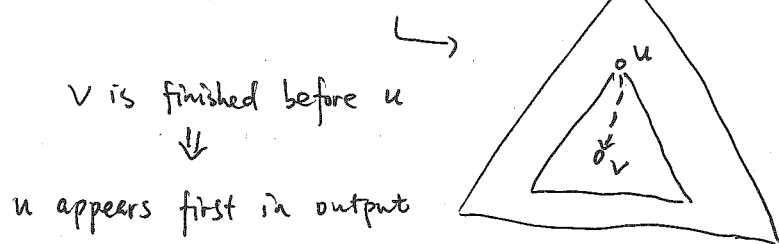 u
v is finished before u
⇓
v
u appears first in output